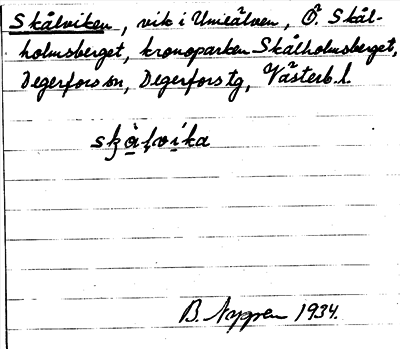 Skålviken, vik i Umeälven, Ö. Skål-
holmsberget, kronoparken Skålholmsberget,
Degerfors sn, Degerfors tg, Västerb. l.
B. Nygren 1934.